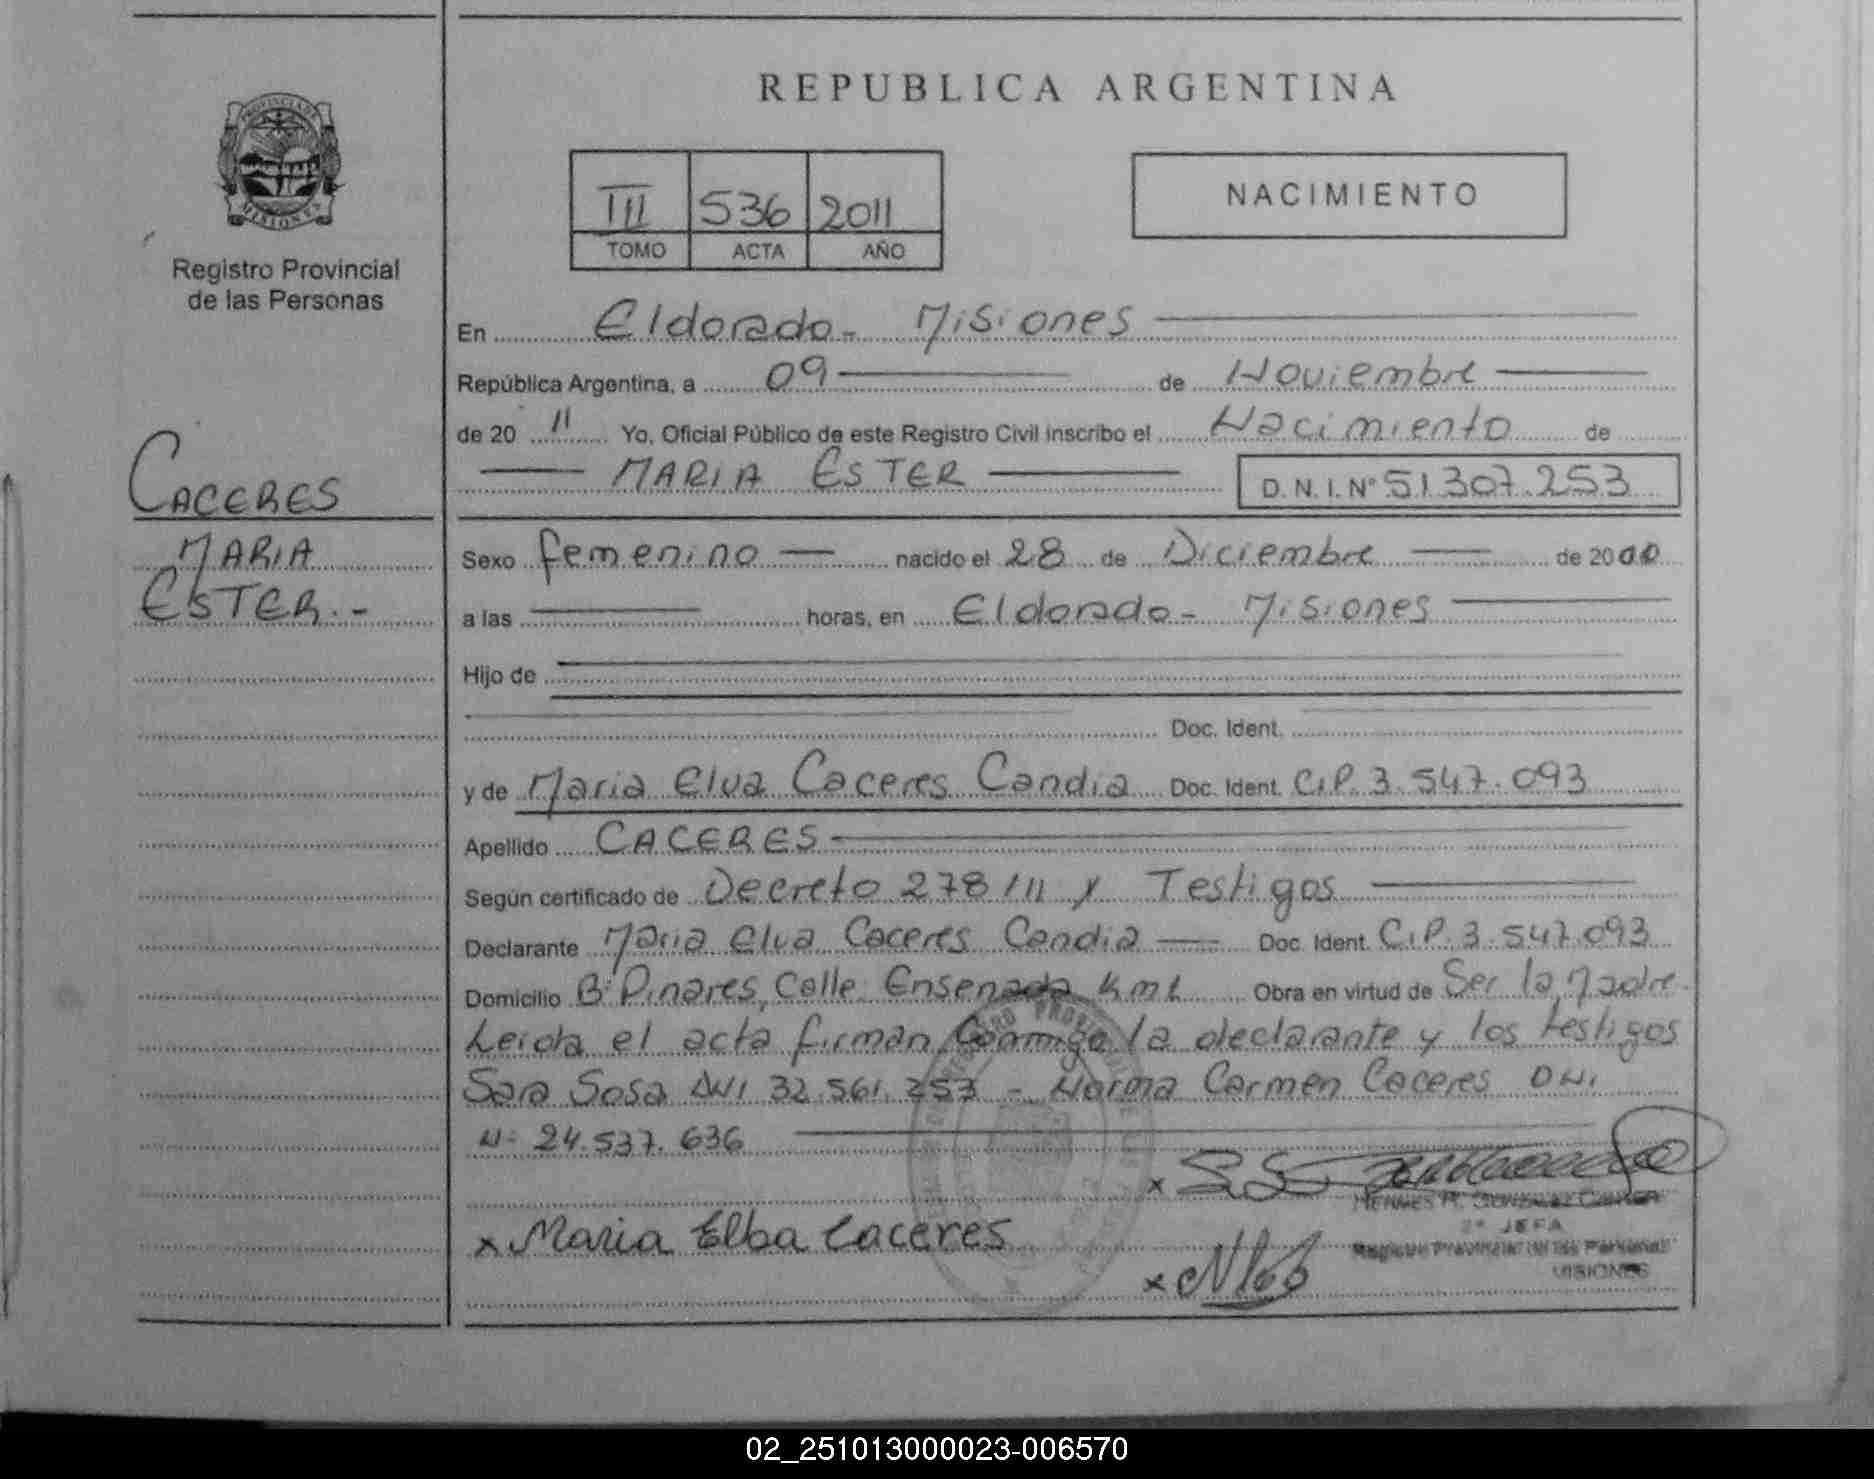 REPUBLICA ARGENTINA
PROVINCIA DE
MISIONES
Registro Provincial
de las Personas
III 536 2011
TOMO ACTA AÑO
NACIMIENTO
En Eldorado - Misiones
República Argentina, a 09 de Noviembre
de 20 11 Yo, Oficial Público de este Registro Civil inscribo el Nacimiento de
MARIA ESTER D.N.I. N° 51.307.253
CACERES
MARIA
ESTER.-
Sexo femenino nacido el 28 de Diciembre de 2000
a las horas, en Eldorado - Misiones
Hijo de
Doc. Ident.
y de Maria Elva Caceres Candia Doc. Ident. C.I.P. 3.547.093
Apellido CACERES
Según certificado de Decreto 278/11 y Testigos
Declarante Maria Elva Caceres Candia Doc. Ident. C.I.P. 3.547.093
Domicilio B: Pinares, Calle Ensenada Km 1 Obra en virtud de Ser la Madre.
Leida el acta firman Conmigo la declarante y los testigos
Sara Sosa DNI 32.561.253 - Norma Carmen Caceres DNI
N: 24.537.636
x
x Maria Elba Caceres
2° JEFA
Registro Provincial de las Personas
MISIONES
x
02_251013000023-006570